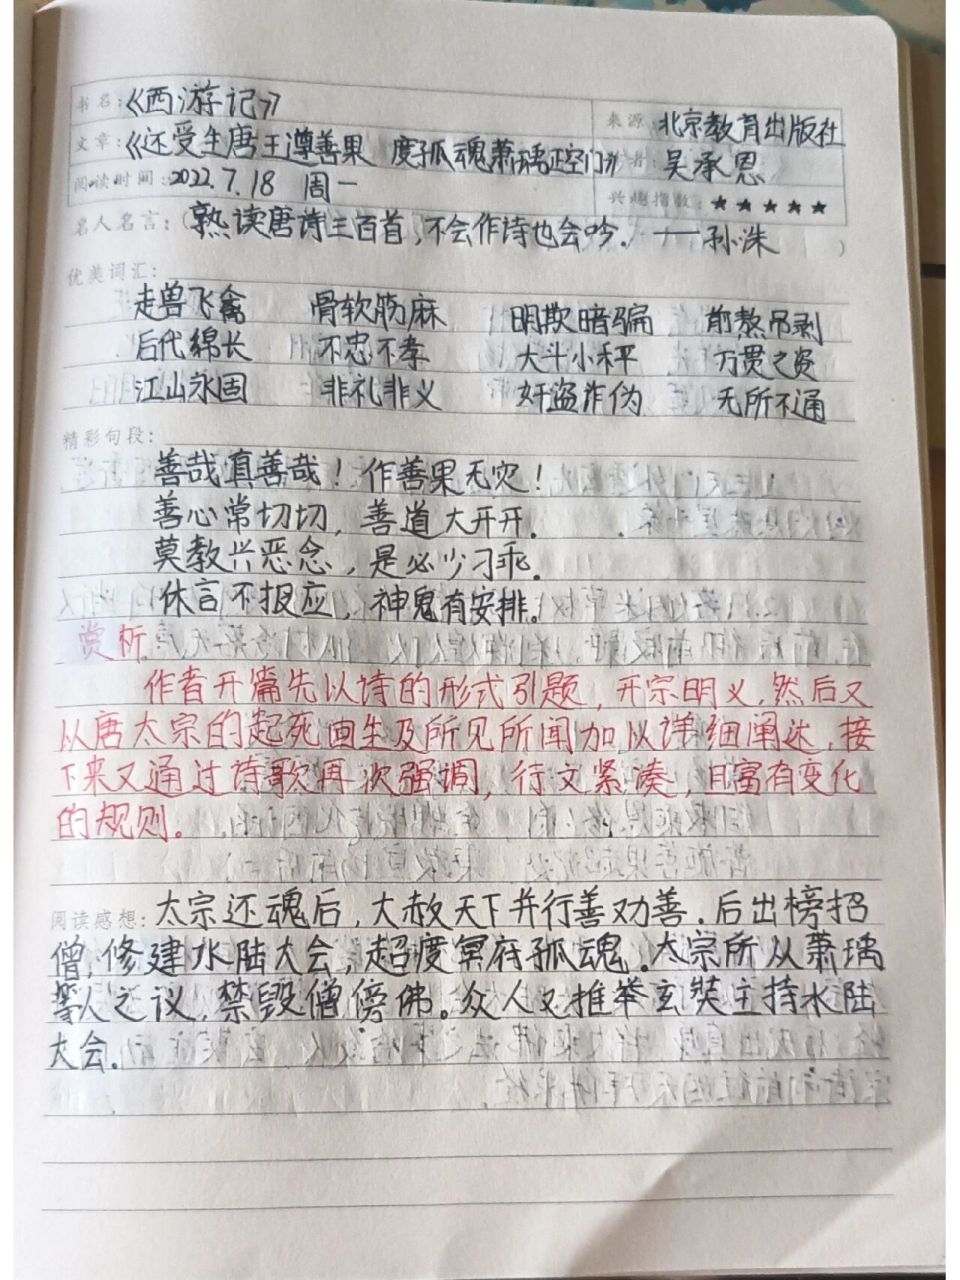 书名：《西游记》 来源：北京教育出版社
文章：《还受生唐王遵善果 度孤魂萧瑀正空门》 作者：吴承恩
阅读时间：2022.7.18 周一 兴趣指数：★★★★★
名人名言：（熟读唐诗三百首，不会作诗也会吟．——孙洙）
优美词汇：
走兽飞禽 骨软筋麻 明欺暗骗 前熬吊剥
后代绵长 不忠不孝 大斗小秤 万贯之资
江山永固 非礼非义 奸盗诈伪 无所不通
精彩句段：
善哉真善哉！作善果无灾！
善心常切切，善道大开开．
莫教兴恶念，是必少刁乖．
休言不报应，神鬼有安排。
赏析
作者开篇先以诗的形式引题，开宗明义，然后又
从唐太宗的起死回生及所见所闻加以详细阐达，接
下来又通过诗歌再次强调，行文紧凑，且富有变化
的规则。
阅读感想：太宗还魂后，大赦天下并行善劝善．后出榜招
僧，修建水陆大会，超度冥府孤魂．太宗所从萧瑀
等人之议，禁毁僧傍佛。众人又推举玄奘主持水陆
大会．